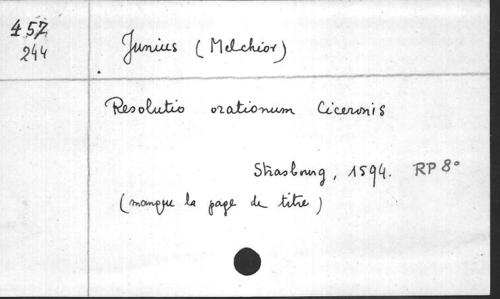 457
244
Junius (Melchior)
Resolutio orationum Ciceronis
Strasbourg, 1594. RP 8°
(manque la page de titre)